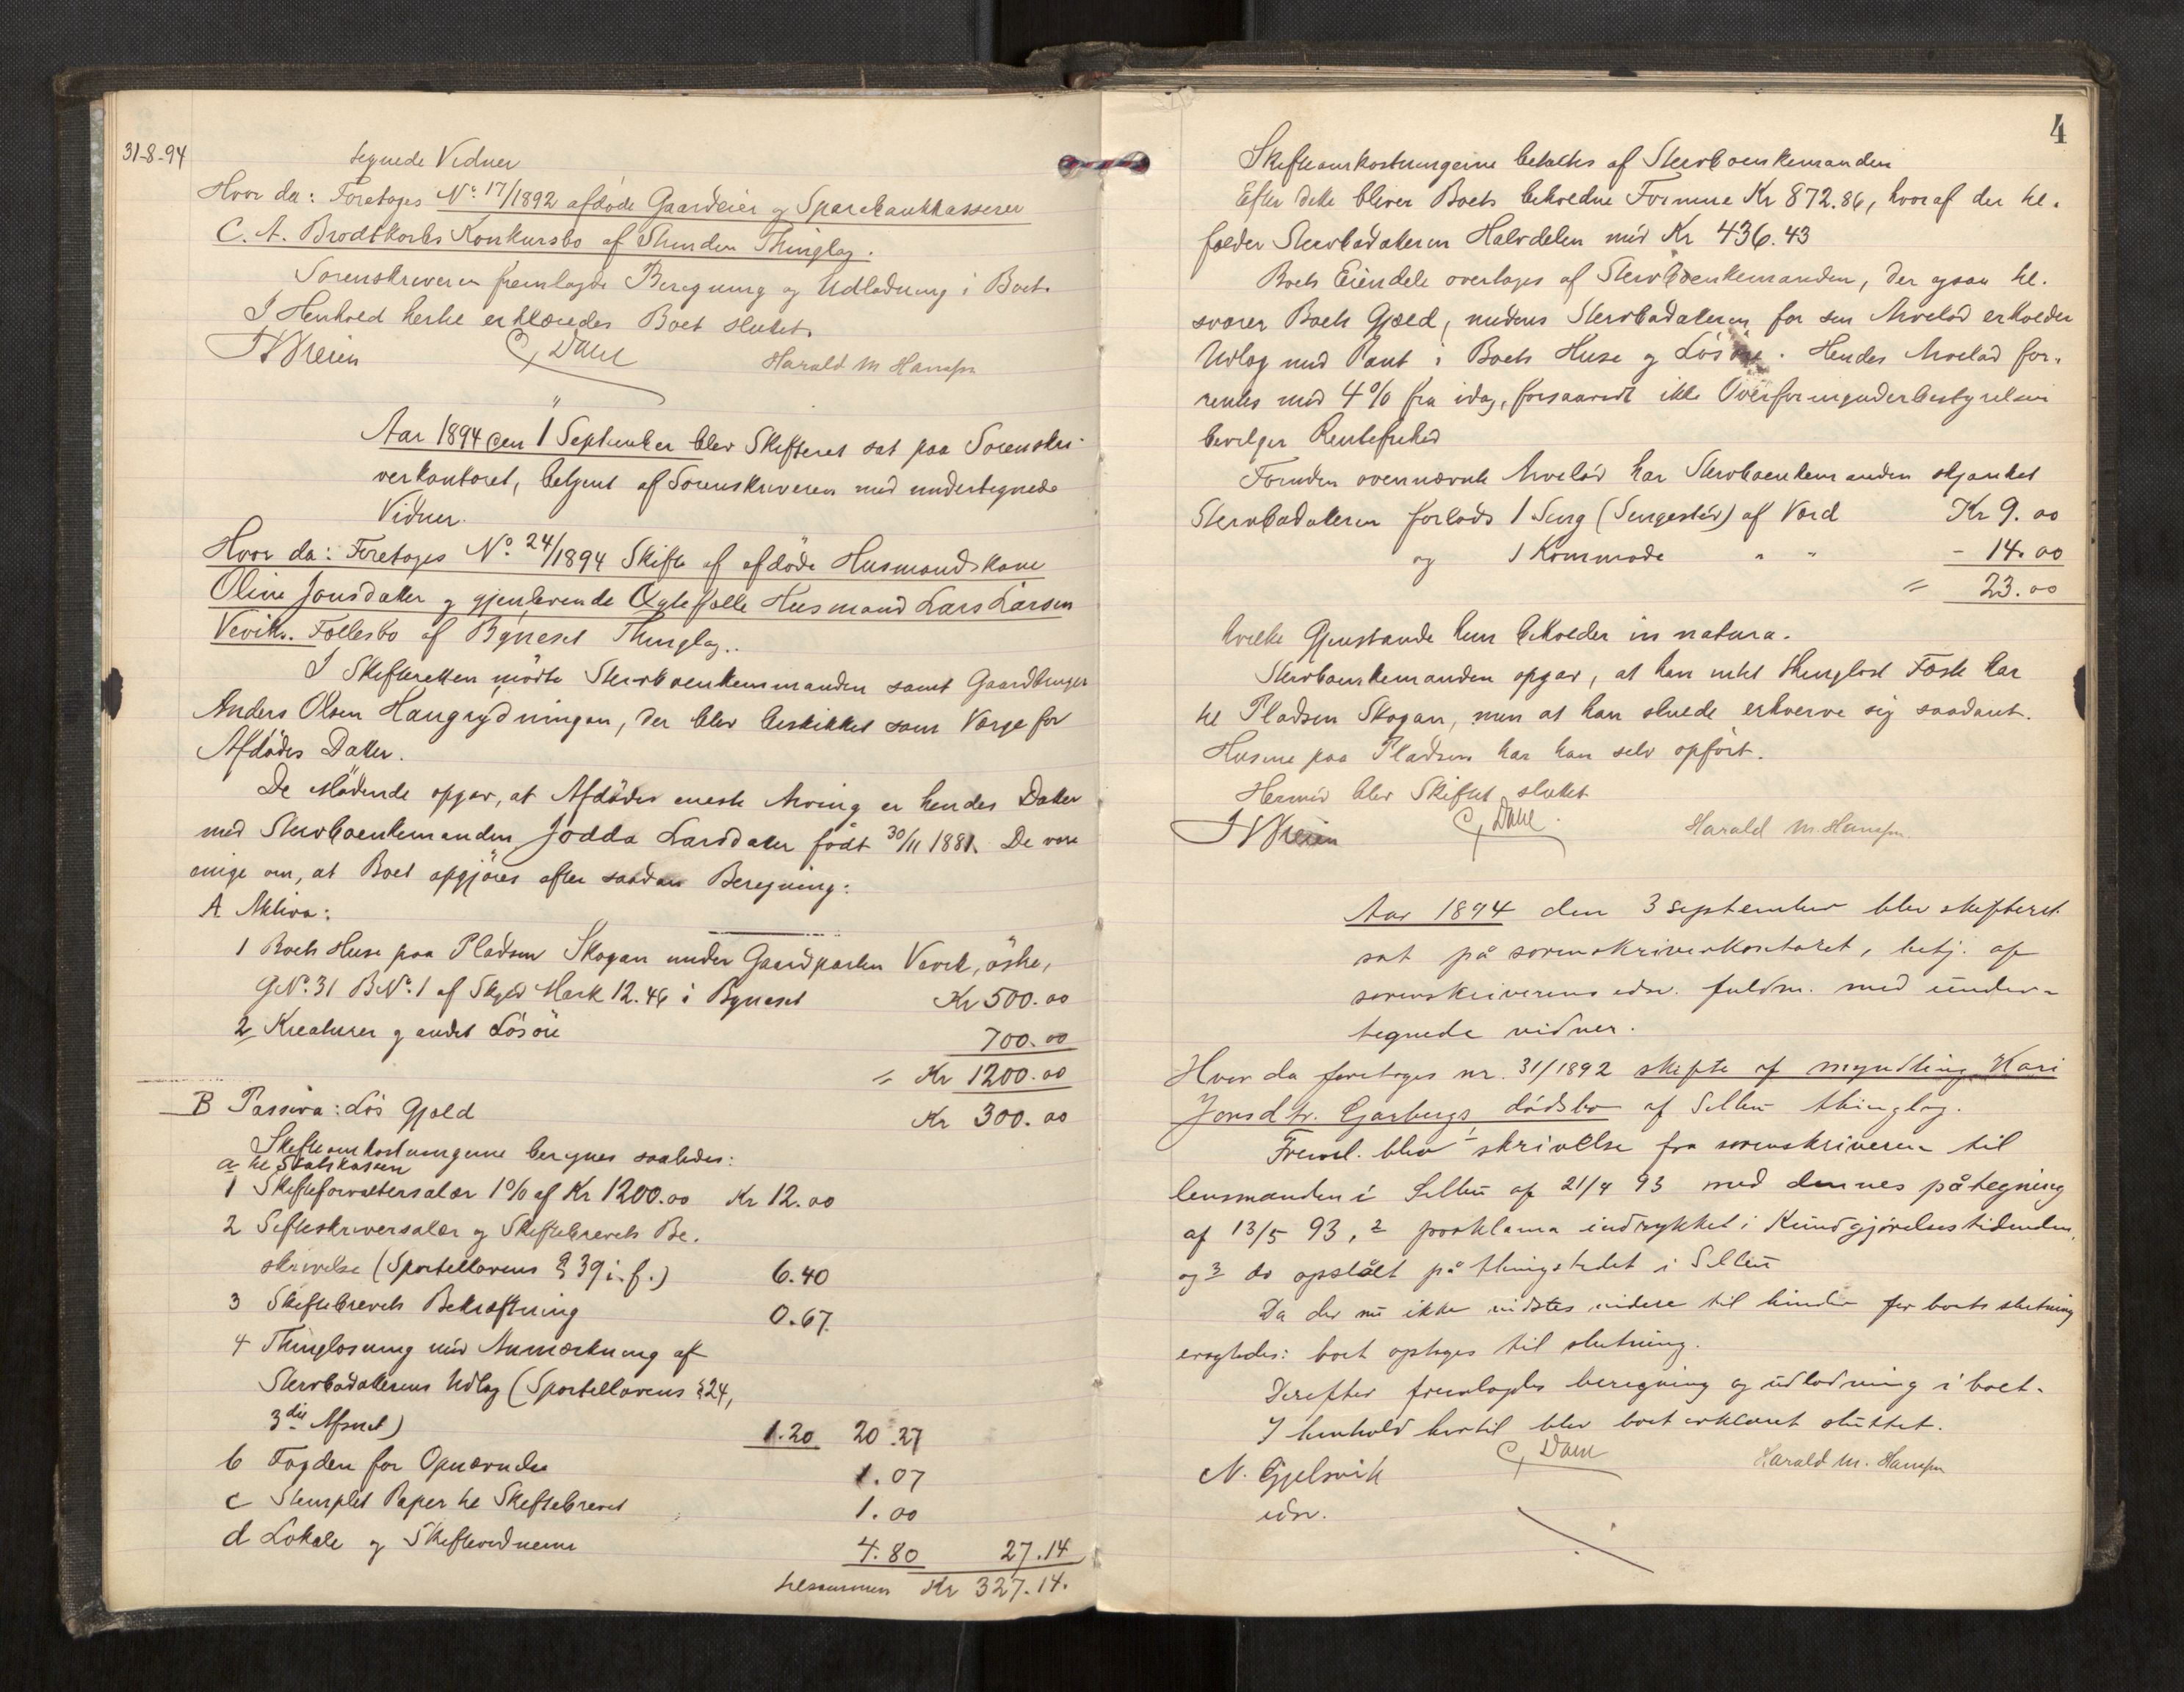 31-8-94
tegnede Vidner
Hvor da: Foretoges No. 17/1892 afdøde Gaardeier og Sparebankkasserer
C. A. Brodtkorbs Konkursbo af Thinglag.
Sorenskriveren fremlagde Beregning og Udlodning i Boet.
I Henhold hertil erklæredes Boet sluttet.
C. Dahl
Harald M Hansen
Aar 1894 den 1 September blev Skifteret sat paa Sorenskri-
verkontoret, betjent af Sorenskriveren med undertegnede
Vidner.
Hvor da: Foretoges No. 24/1894 Skifte af afdøde Husmandskone
Oline Jonsdatter og gjenlevende Ægtefælle Husmand Lars Larsen
Vevik. Fællesbo af Bynesets Thinglag..
I Skifteretten mødte Stervboenkemanden samt Gaardbruger
Anders Olsen Haugrydningen, der blev beskikket som Værge for
Afdødes Datter.
De Mødende opgav, at Afdødes eneste Arving er hendes Datter
med Stervboenkemanden Jødda Larsdatter født 30/11 1881. De vare
enige om, at Boet opgjøres efter saadan Beregning:
A Aktiva:
1 Boets Huse paa Pladsen Skogan under Gaardparten Vevik, østre,
GNo. 31 BNo. 1 af Skyld Mark 12.46 i Bynesset Kr 500.00
2 Kreaturer og andet Løsøre 700.00
= Kr 1200.00
B Passiva: Løs Gjæld Kr 300.00
Skifteomkostningerne beregnes saaledes:
a til Statskassen
1 Skifteforvaltersalær 1% af Kr 1200.00 Kr 12.00
2 Sifteskriversalær og Skiftebrevets Be-
skrivelse (Sportellovens § 39 i. f.) 6.40
3 Skiftebrevets Bekræftning 0.67
4 Thinglæsning med Anmærkning af
Stervbodatterens Udlæg (Sportellovens § 24,
3die Afsnit) 1.20 20.27
b Fogden for Opnævnelse 1.07
c Stemplet Papir til Skiftebrevet 1.00
d Lokale og Skiftevidnerne 4.80 27.14
tilsammen Kr 327.14.
4
Skifteomkostningerne betaltes af Stervboenkemanden
Efter dette bliver Boets beholdne Formue Kr 872.86, hvoraf der til-
falder Stervbodatteren Halvdelen med Kr 436.43
Boets Eiendele overtages af Stervboenkemanden, der ogsaa til-
svarer Boets Gjæld, medens Stervbodatteren for sin Arvelod erholder
Udlæg med Pant i Boets Huse og Løsøre. Hendes Arvelod for-
rentes med 4% fra idag, forsaavidt ikke Overformynderbestyrelsen
bevilger Rentefrihed
Foruden ovennævnte Arvelod har Stervboenkemanden skjænket
Stervbodatteren forlods 1 Seng (Sengested) af Værd Kr 9.00
og 1 Kommode " " - 14.00
= 23.00
hvilke Gjenstande hun beholder in natura.
Stervboenkemanden opgav, at han intet thinglæst Fæste har
til Pladsen Skogan, men at han skulde erhverve sig saadant.
Husene paa Pladsen har han selv opført.
Hermed blev Skiftet sluttet
C. Dahl.
Harald M. Hansen.
Aar 1894 den 3 september blev skifteret
sat på sorenskriverkontoret, betj. af
sorenskriverens edsv. fuldm. med under-
tegnede vidner.
Hvor da foretoges nr. 31/1892 skifte af myndling Kari
Jonsdtr. Garbergs dødsbo af Selbu thinglag.
Freml. blev 1 skrivelse fra sorenskriveren til
lensmanden i Selbu af 21/4 93 med dennes påtegning
af 13/5 93, 2 proklama indrykket i Kundgjørelsestidenden,
og 3 do opslået på thingstedet i Selbu
Da der nu ikke vidstes videre til hinder for boets slutning
eragtedes: boet optages til slutning.
Derefter fremlagdes beregning og udlodning i boet.
I henhold hertil blev boet erklæret sluttet.
N. Gjelsvik
edsv.
C. Dahl
Harald M. Hansen